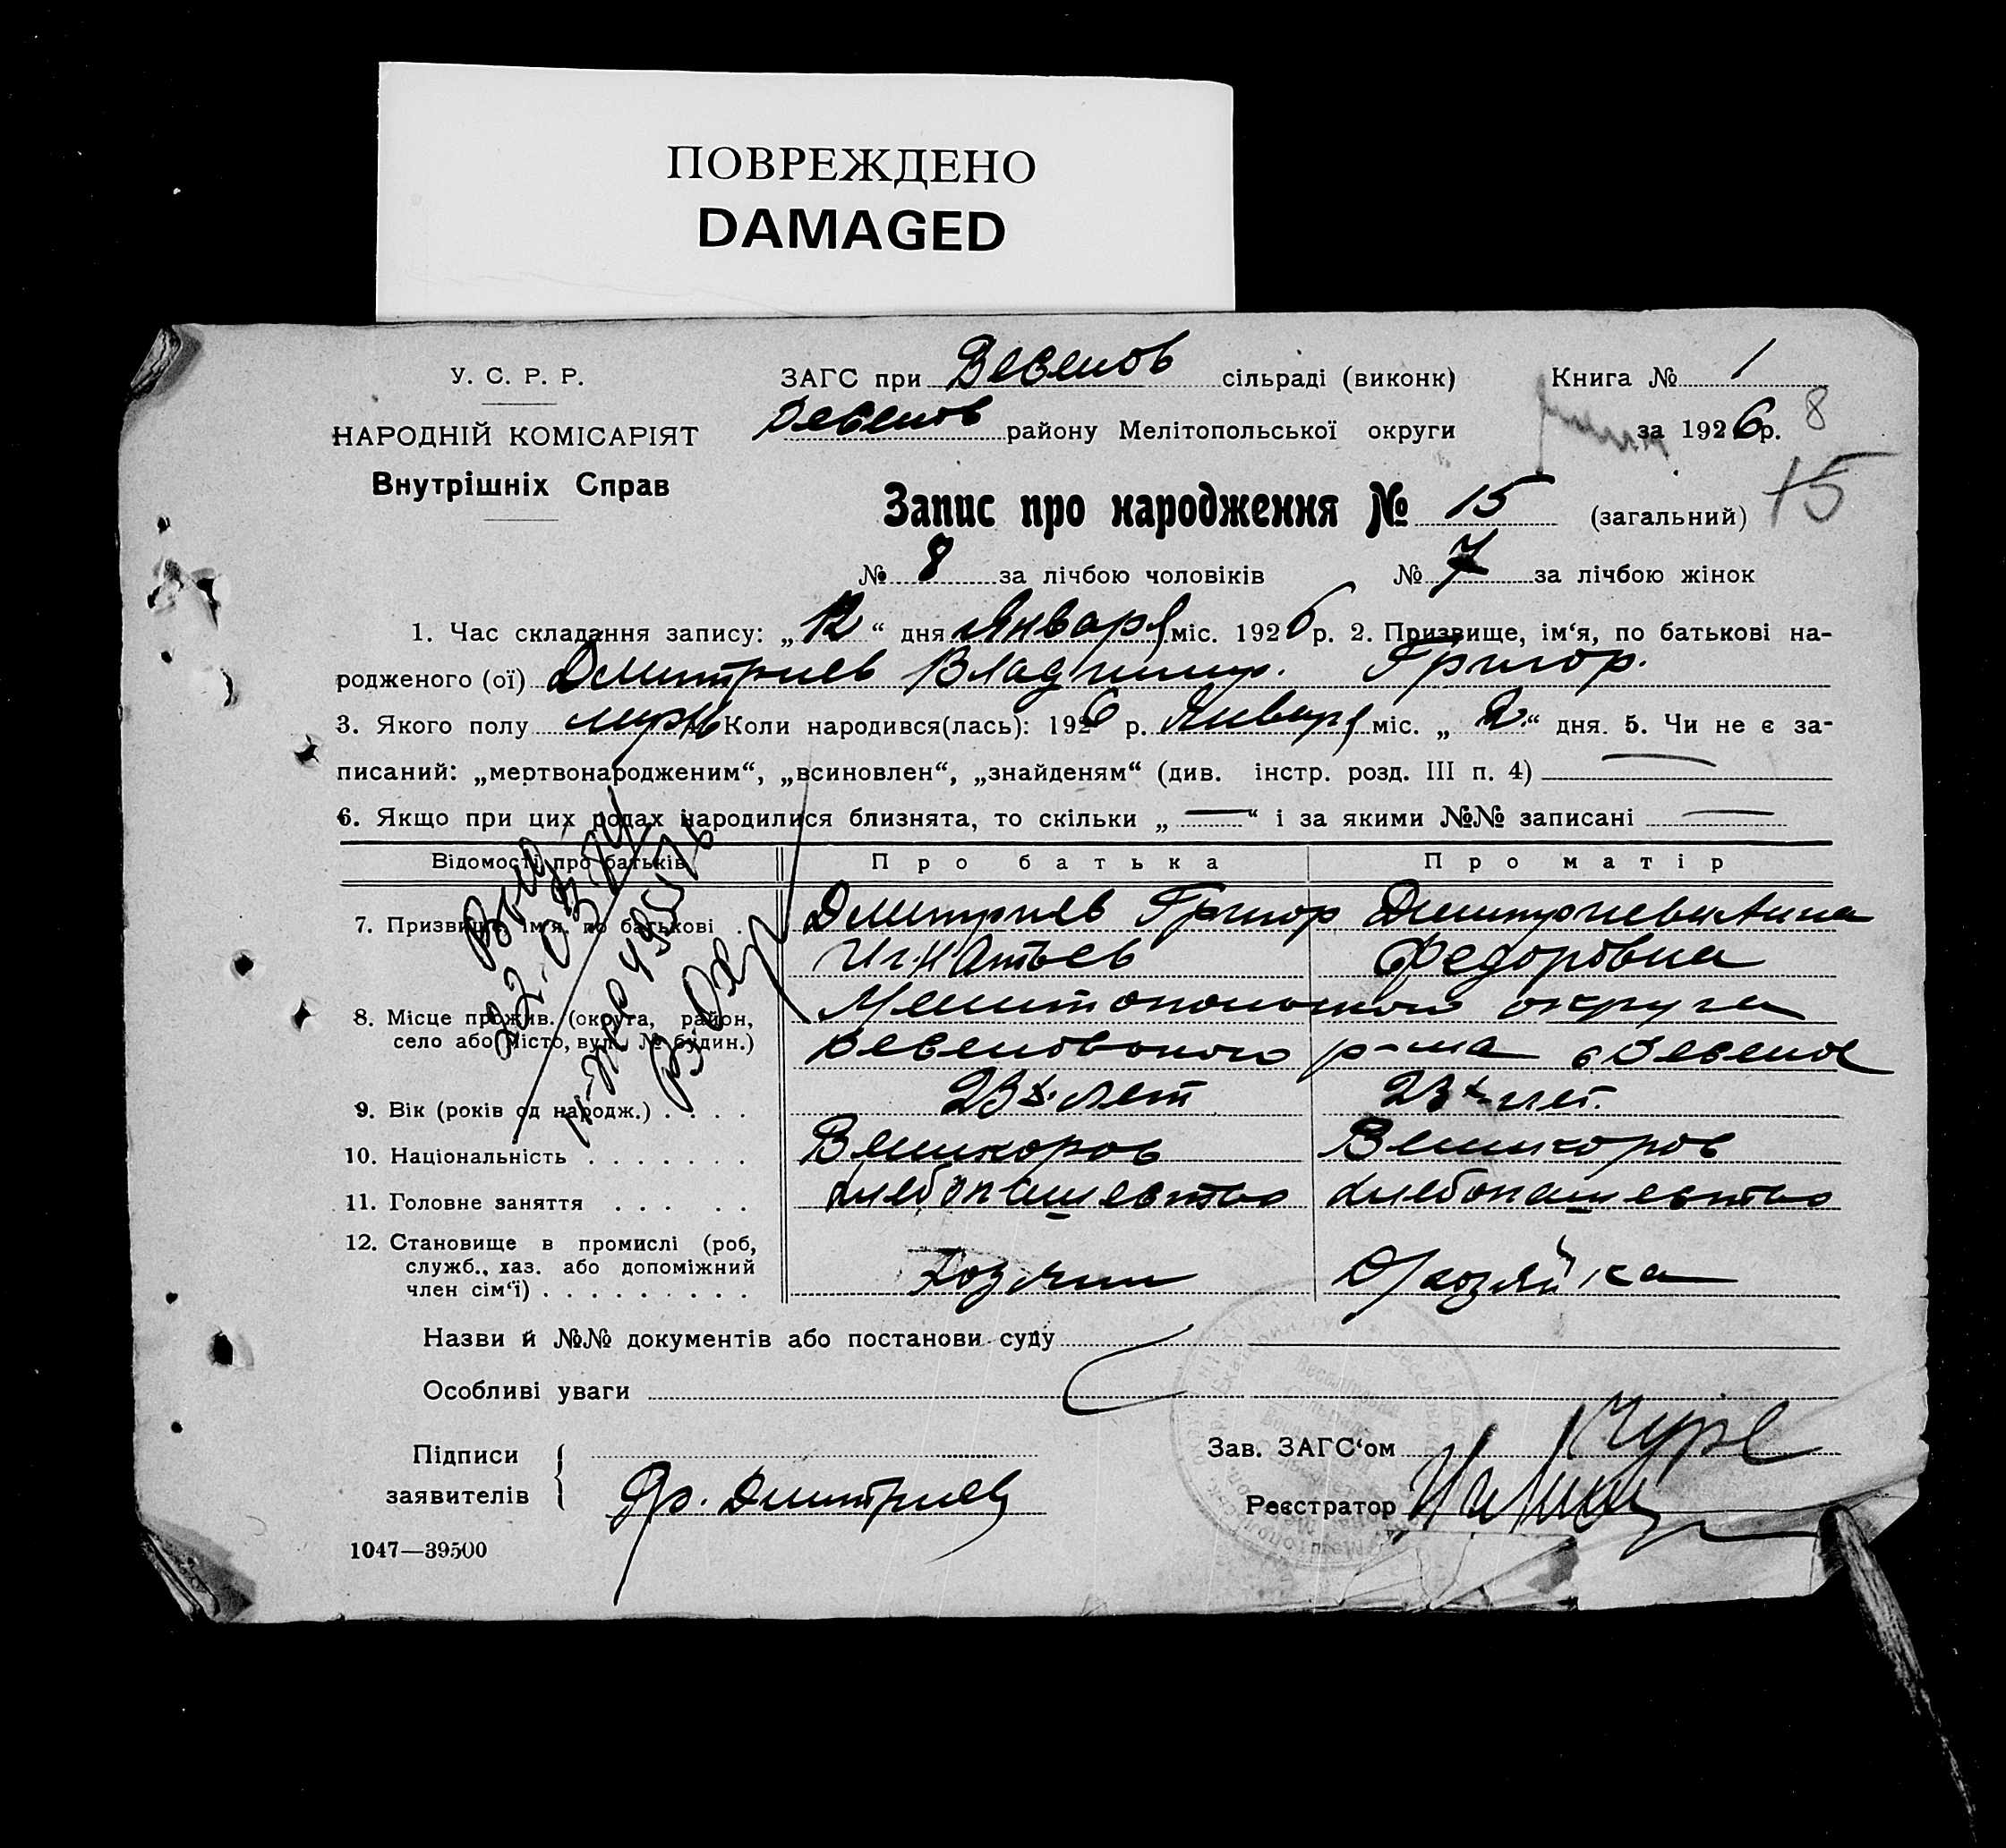 ПОВРЕЖДЕНО
DAMAGED
У. С. Р. Р.
НАРОДНІЙ КОМІСАРІЯТ
Внутрішніх Справ
ЗАГС при Веселов сільраді (виконк)
Веселов району Мелітопольської округи
Книга № 1
за 1926 р. 8
Запис про народження № 15 (загальний) 15
№ 8 за лічбою чоловіків № 7 за лічбою жінок
1. Час складання запису: „12“ дня Января міс. 1926 р. 2. Призвище, ім‘я, по батькові на-
родженого (ої) Дмитриев Владимир. Григор.
3. Якого полу муж Коли народився(лась): 1926 р. Января міс. „2“ дня. 5. Чи не є за-
писаний: „мертвонародженим“, „всиновлен“, „знайденям“ (див. інстр. розд. III п. 4)
6. Якщо при цих родах народилися близнята, то скільки „ — “ і за якими №№ записані —
Відомості про батьків Про батька Про матір
7. Призвище, ім‘я. по батькові . Дмитриев Григор Дмитриева Анна
Игнатьев Федоровна
8. Місце прожив. (округа, район, Мелитопольской округи
село або місто, вул. № будин.) Веселовского р-на с Веселое
9. Вік (років од народж.) . . . . 23х лет 23х лет.
10. Національність . . . . . . . Великоров Великоров
11. Головне заняття . . . . . Хлебопашевство Хлебопашевство
12. Становище в промислі (роб,
служб., хаз. або допоміжний
член сім‘ї) . . . . . . . . . Хозяин Д/хозяйка
Назви й №№ документів або постанови суду
Особливі уваги
Підписи
заявителів Гр. Дмитриев
Зав. ЗАГС‘ом
Реєстратор
1047—39500